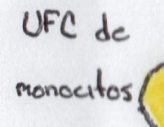 UFC de
monocitos